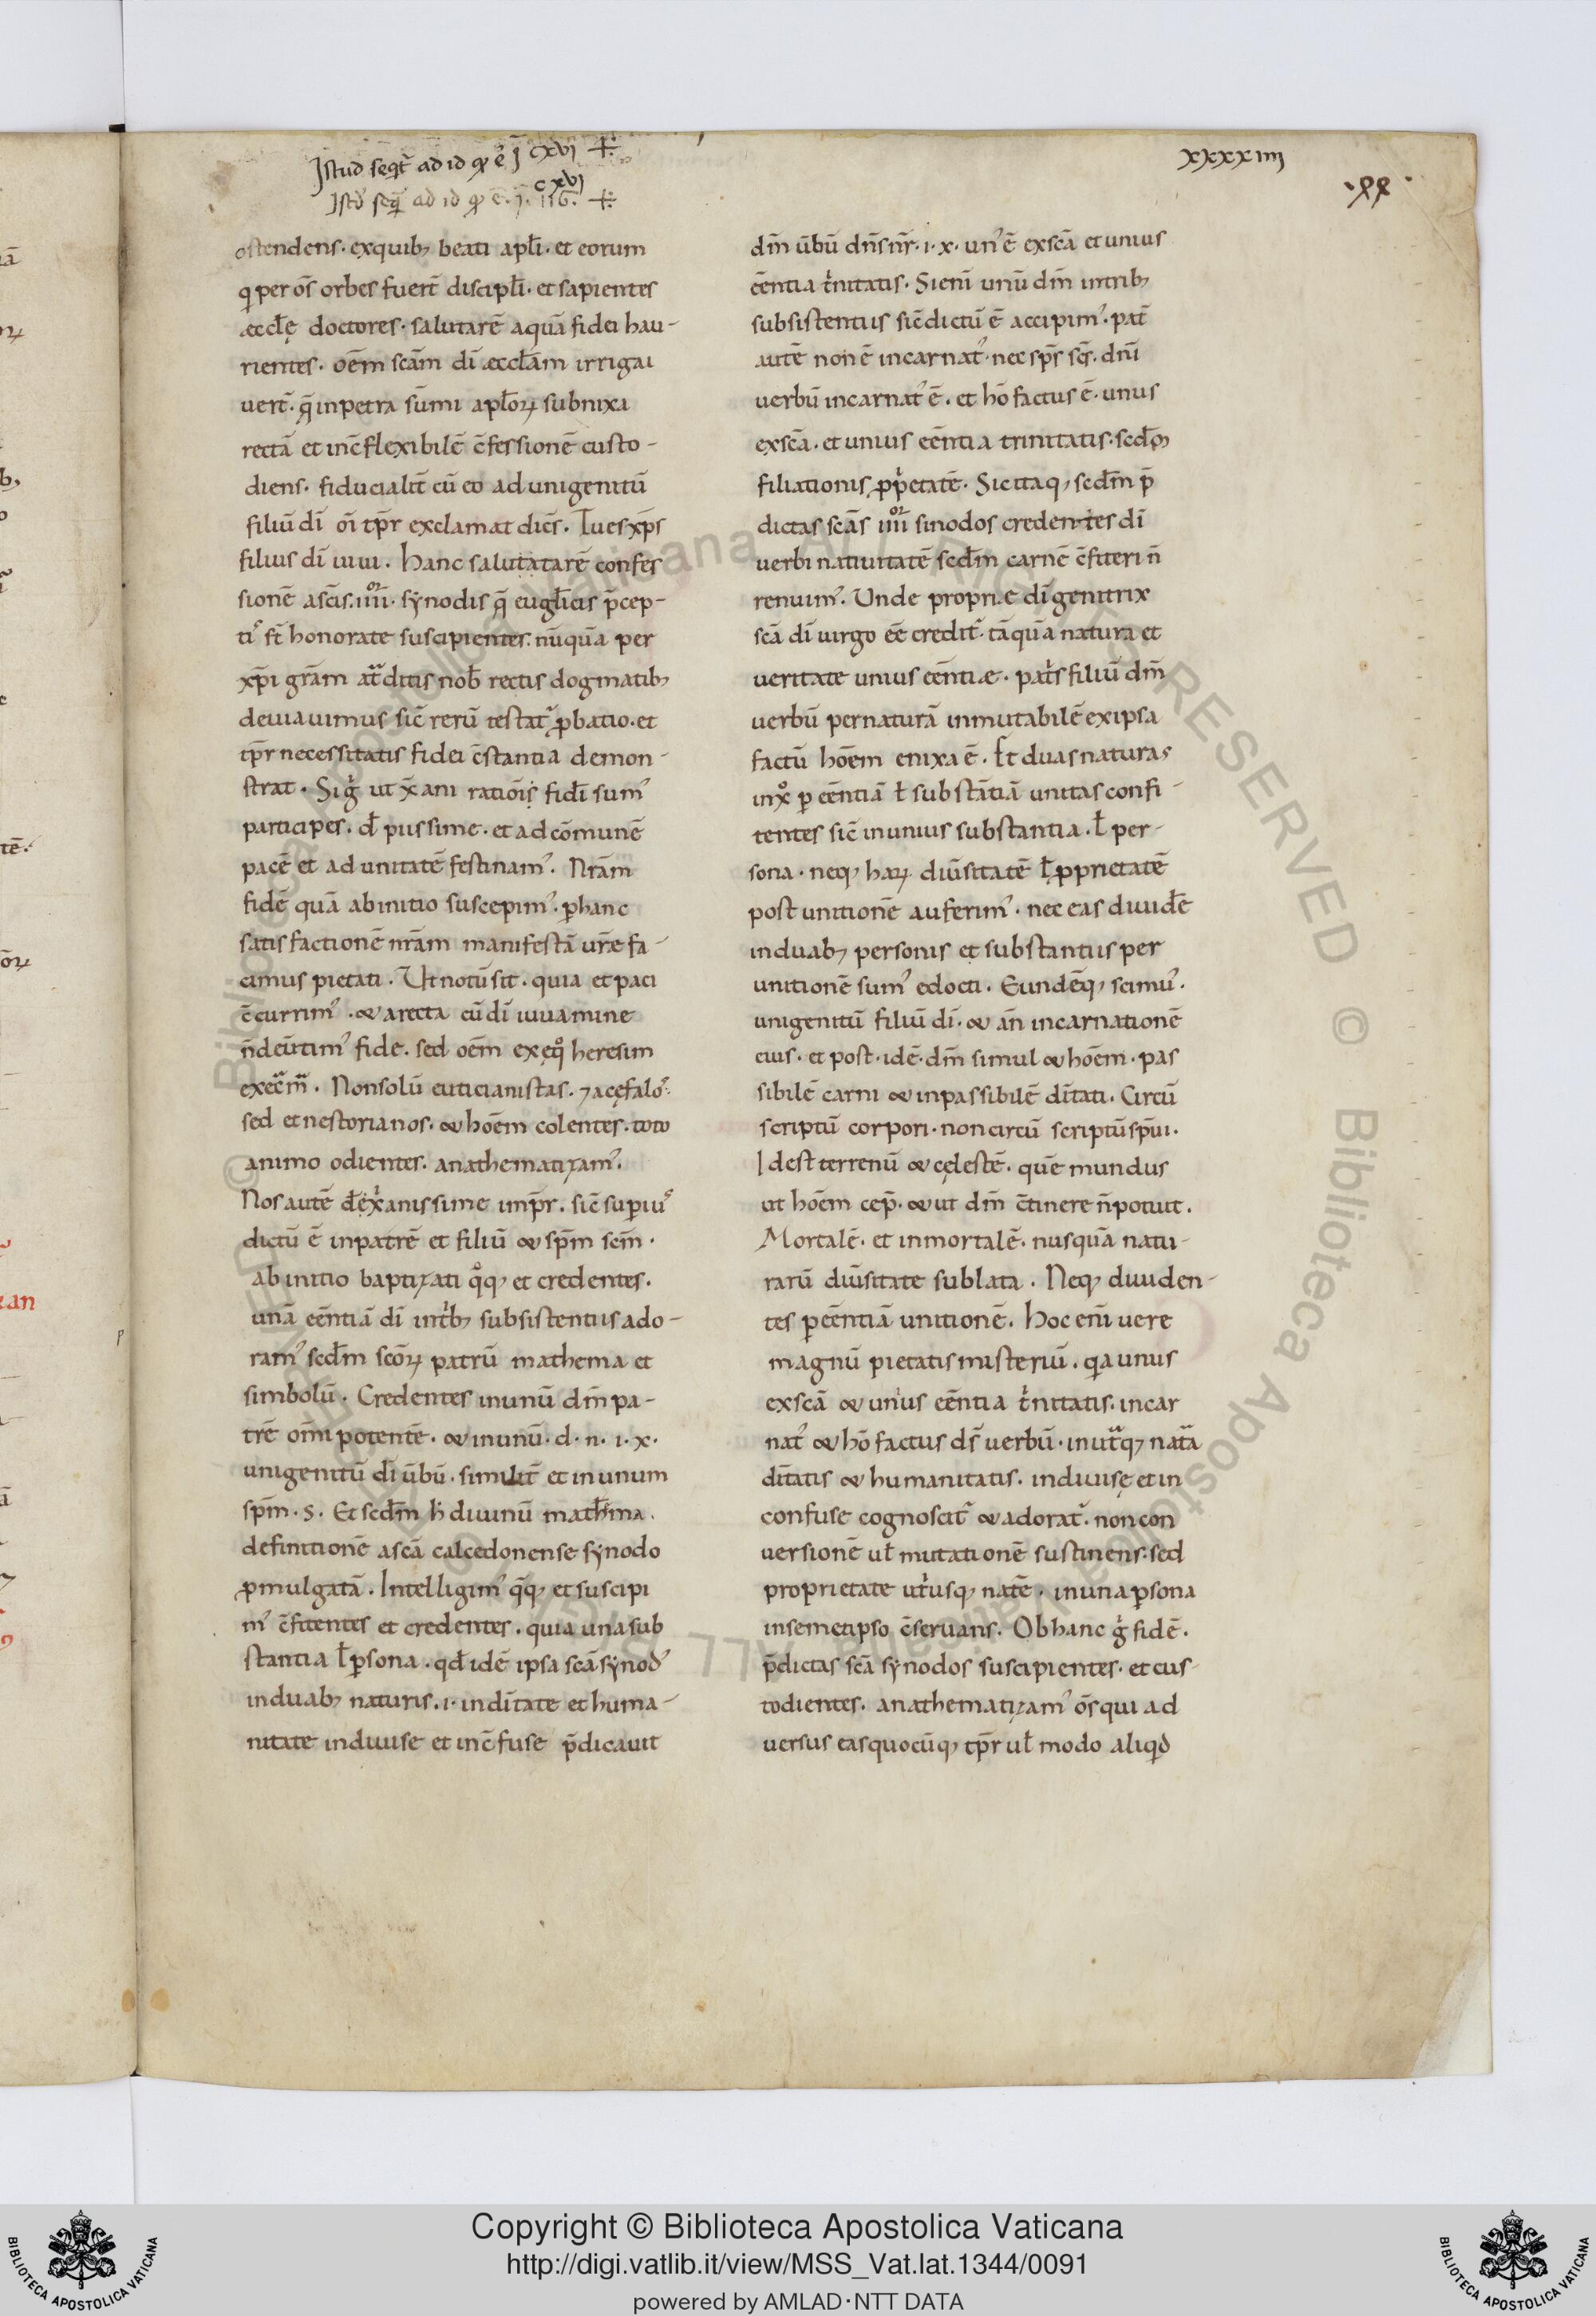 Istud seqt̄ ad id qđ ē ī cxvi
xxxxiiii
Istđ seqt̄ ad id qđ ē. ī. 116. cxvi
ostendens. exquib; beati apłi. et eorum
q per os̄ orbes fuert̄ discipłi. et sapientes
æccłę doctores. salutarē aquā fidei hau-
rientes. oēm scām dī æccłam irrigai
uert̄. q̄ inpetra sūmi apłorꝝ subnixa
rectā et inc̄flexibilē c̄fessionē custo-
diens. fiducialit̄ cū eo ad unigenitū
filiū dī oī tp̄r exclamat dicēs. Tu es xp̄s
filius dī uiui. Hanc salutatarē confes
sionē a sc̄is. iiii͛. sẏnodis q̄ euglicis p̄cep-
ti᾽ st̄ honorate suscipientes. nūquā per
xp̄i grām at̄ditis nob̄ rectis dogmatib;
deuiauimus sic̄ rerū testat᾽ ꝓbatio. et
tp̄r necessitatis fidei c̄stantia demon-
strat. Si g̓ ut x̄ani ratiōis fidī sum᾽
participes. đ piissime. et ad cōmunē
pacē et ad unitatē festinam᾽. Nrām
fidē quā abinitio suscepim᾽. ꝑhanc
satisfactionē nrām manifestā urē fa-
cimus pietati. Ut notū sit. quia et paci
c̄currim᾽. & arecta cū dī iuuamine
n̄deūtim᾽ fide. sed oēm exęq͛ heresim
exec̄m̄. Nonsolū euticianistas. ⁊ acęfalo᾽.
sed et nestorianos. & hoēm colentes. toto
animo odientes. anathematizam᾽.
Nos autē đe x̄anissime imp̄r. sic̄ supiu᾽
dictū ē inpatrē et filiū & sp̄m scm̄.
abinitio baptizati q͛q; et credentes.
unā eēntiā dī intͥb; subsistentiis ado-
ram᾽ scđm scōrꝝ patrū mathema et
simbolū. Credentes inunū dm̄ pa-
trē om̄ipotentē. & inunū. d. n. i. x.
unigenitū dī ūbū. similit̄ et in unum
sp̄m. s. Et scđm h̓ diuinū math̄ma.
definitionē ascā calcedonense sẏnodo
ꝓmulgatā. Intelligim᾽ q̄q; et suscipi
m᾽ c̄fitentes et credentes. quia una sub
stantia ł ꝑsona. qđ idē ipsa scā sẏnod᾽
induab; naturis. i. indītate et huma-
nitate indiuise et inc̄fuse p̄dicauit
dm̄ ūbū dn̄s nr̄. i. x. un᾽ ē exscā et unius
eēntia tͥnitatis. Si eni unū dm̄ intrib;
subsistentiis sic̄ dictū ē accipim᾽. pat̄
autē non ē incarnat᾽. nec sp̄s scs̄. dnī
uerbū incarnat᾽ ē. et hō factus ē. unus
exscā. et unius eēntia trinitatis. scđm
filiationis ꝓpͥetatē. Sic itaq; scđm p̄
dictas scās iiii͛ sinodos credentes dī
uerbi natiuitatē scđm carnē c̄fiteri n̄
renuim᾽. Unde proprie dī genitrix
scā dī uirgo eē credit᾽. tāquā natura et
ueritate unius eēntiæ. patͥs filiū dm̄
uerbū pernaturā inmutabilē exipsa
factū hoēm enixa ē. Et duas naturas
inx͛o ꝑ eēntiā ł substātiā unitas confi-
tentes sic̄ inunius substantia. ł per-
sona. neq; harꝝ diūsitatē ł ꝓprietatē
post unitionē auferim᾽. nec eas diuidē
induab; personis et substantiis per
unitionē sum᾽ edocti. Eundēq; scimu᾽.
unigenitū filiū dī. & an̄ incarnationē
eius. et post. idē. dm̄ simul & hoēm. pas
sibilē carni & inpassibilē dītati. Circū
scriptū corpori. noncircū scriptū sp̄ui.
Idest terrenū & cęlestē. quē mundus
ut hoēm cep̄. & ut dm̄ c̄tinere n̄potuit.
Mortalē. et inmortalē. nusquā natu-
rarū diūsitate sublata. Neq; diuiden-
tes ꝑ eēntiā unitionē. Hoc eni uere
magnū pietatis misteriū. qa unus
exscā & unͥus eēntia tͥnitatis. incar
nat᾽ & hō factus ds̄ uerbū. inutͣq; natͣa
dītatis & humanitatis. indiuisę et in
confuse cognoscit᾽ & adorat᾽. non con
uersionē uł mutationē sustinens. sed
proprietate utͥusq; natē. inuna ꝑsona
insemetipso c̄seruans. Ob hanc g̓ fidē.
p̄dictas scā sẏnodos suscipientes. et cus-
todientes. anathematizam᾽ os̄ qui ad
uersus eas quocūq; tp̄r uł modo aliqđ
Copyright © Biblioteca Apostolica Vaticana
http://digi.vatlib.it/view/MSS_Vat.lat.1344/0091
powered by AMLAD·NTT DATA